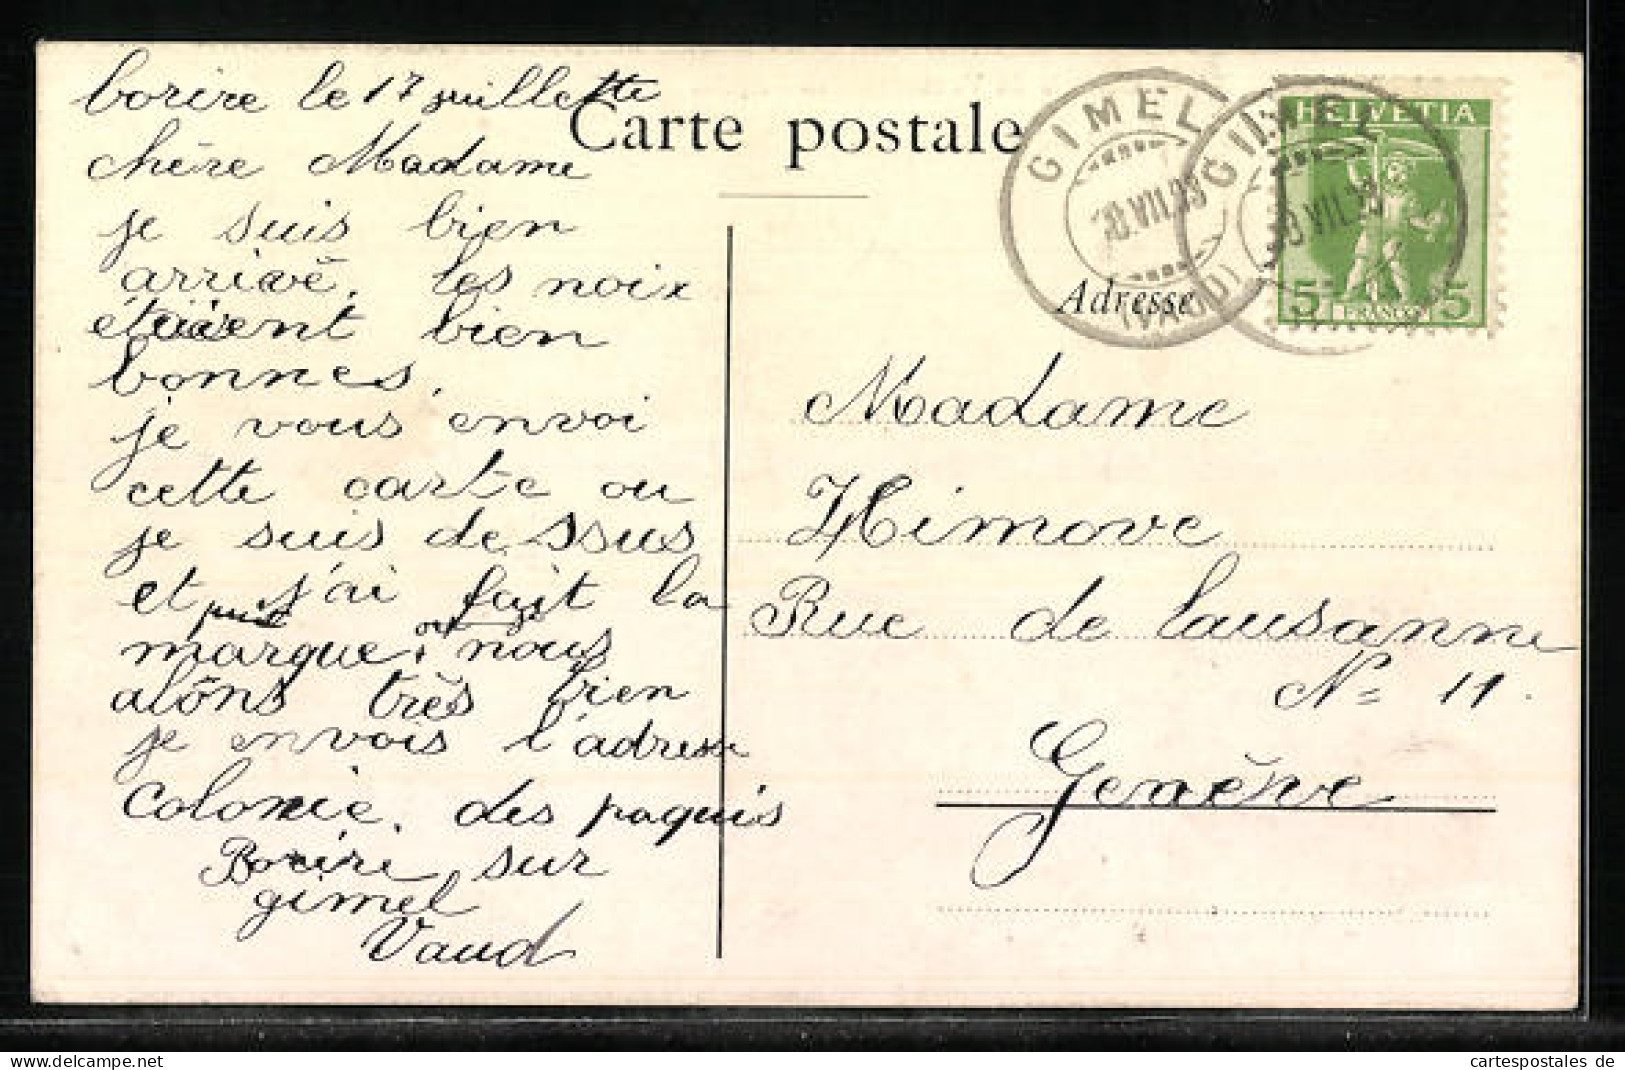 borire le 17 juillette
chère Madame
je suis bien
arrivé, les noix
étaient bien
bonnes.
je vous envoi
cette carte ou
je suis dessus
et j'ai fait la
marque. nous
alôns très bien
je envois l'adresse
Colonie. des paquis
Borire sur
gimel
Vaud
Carte postale
GIMEL
(VAUD)
GIMEL
HELVETIA
5 FRANCO 5
Adresse
Madame
Himove
Rue de Lausanne
No 11.
Genève
cartespostales de